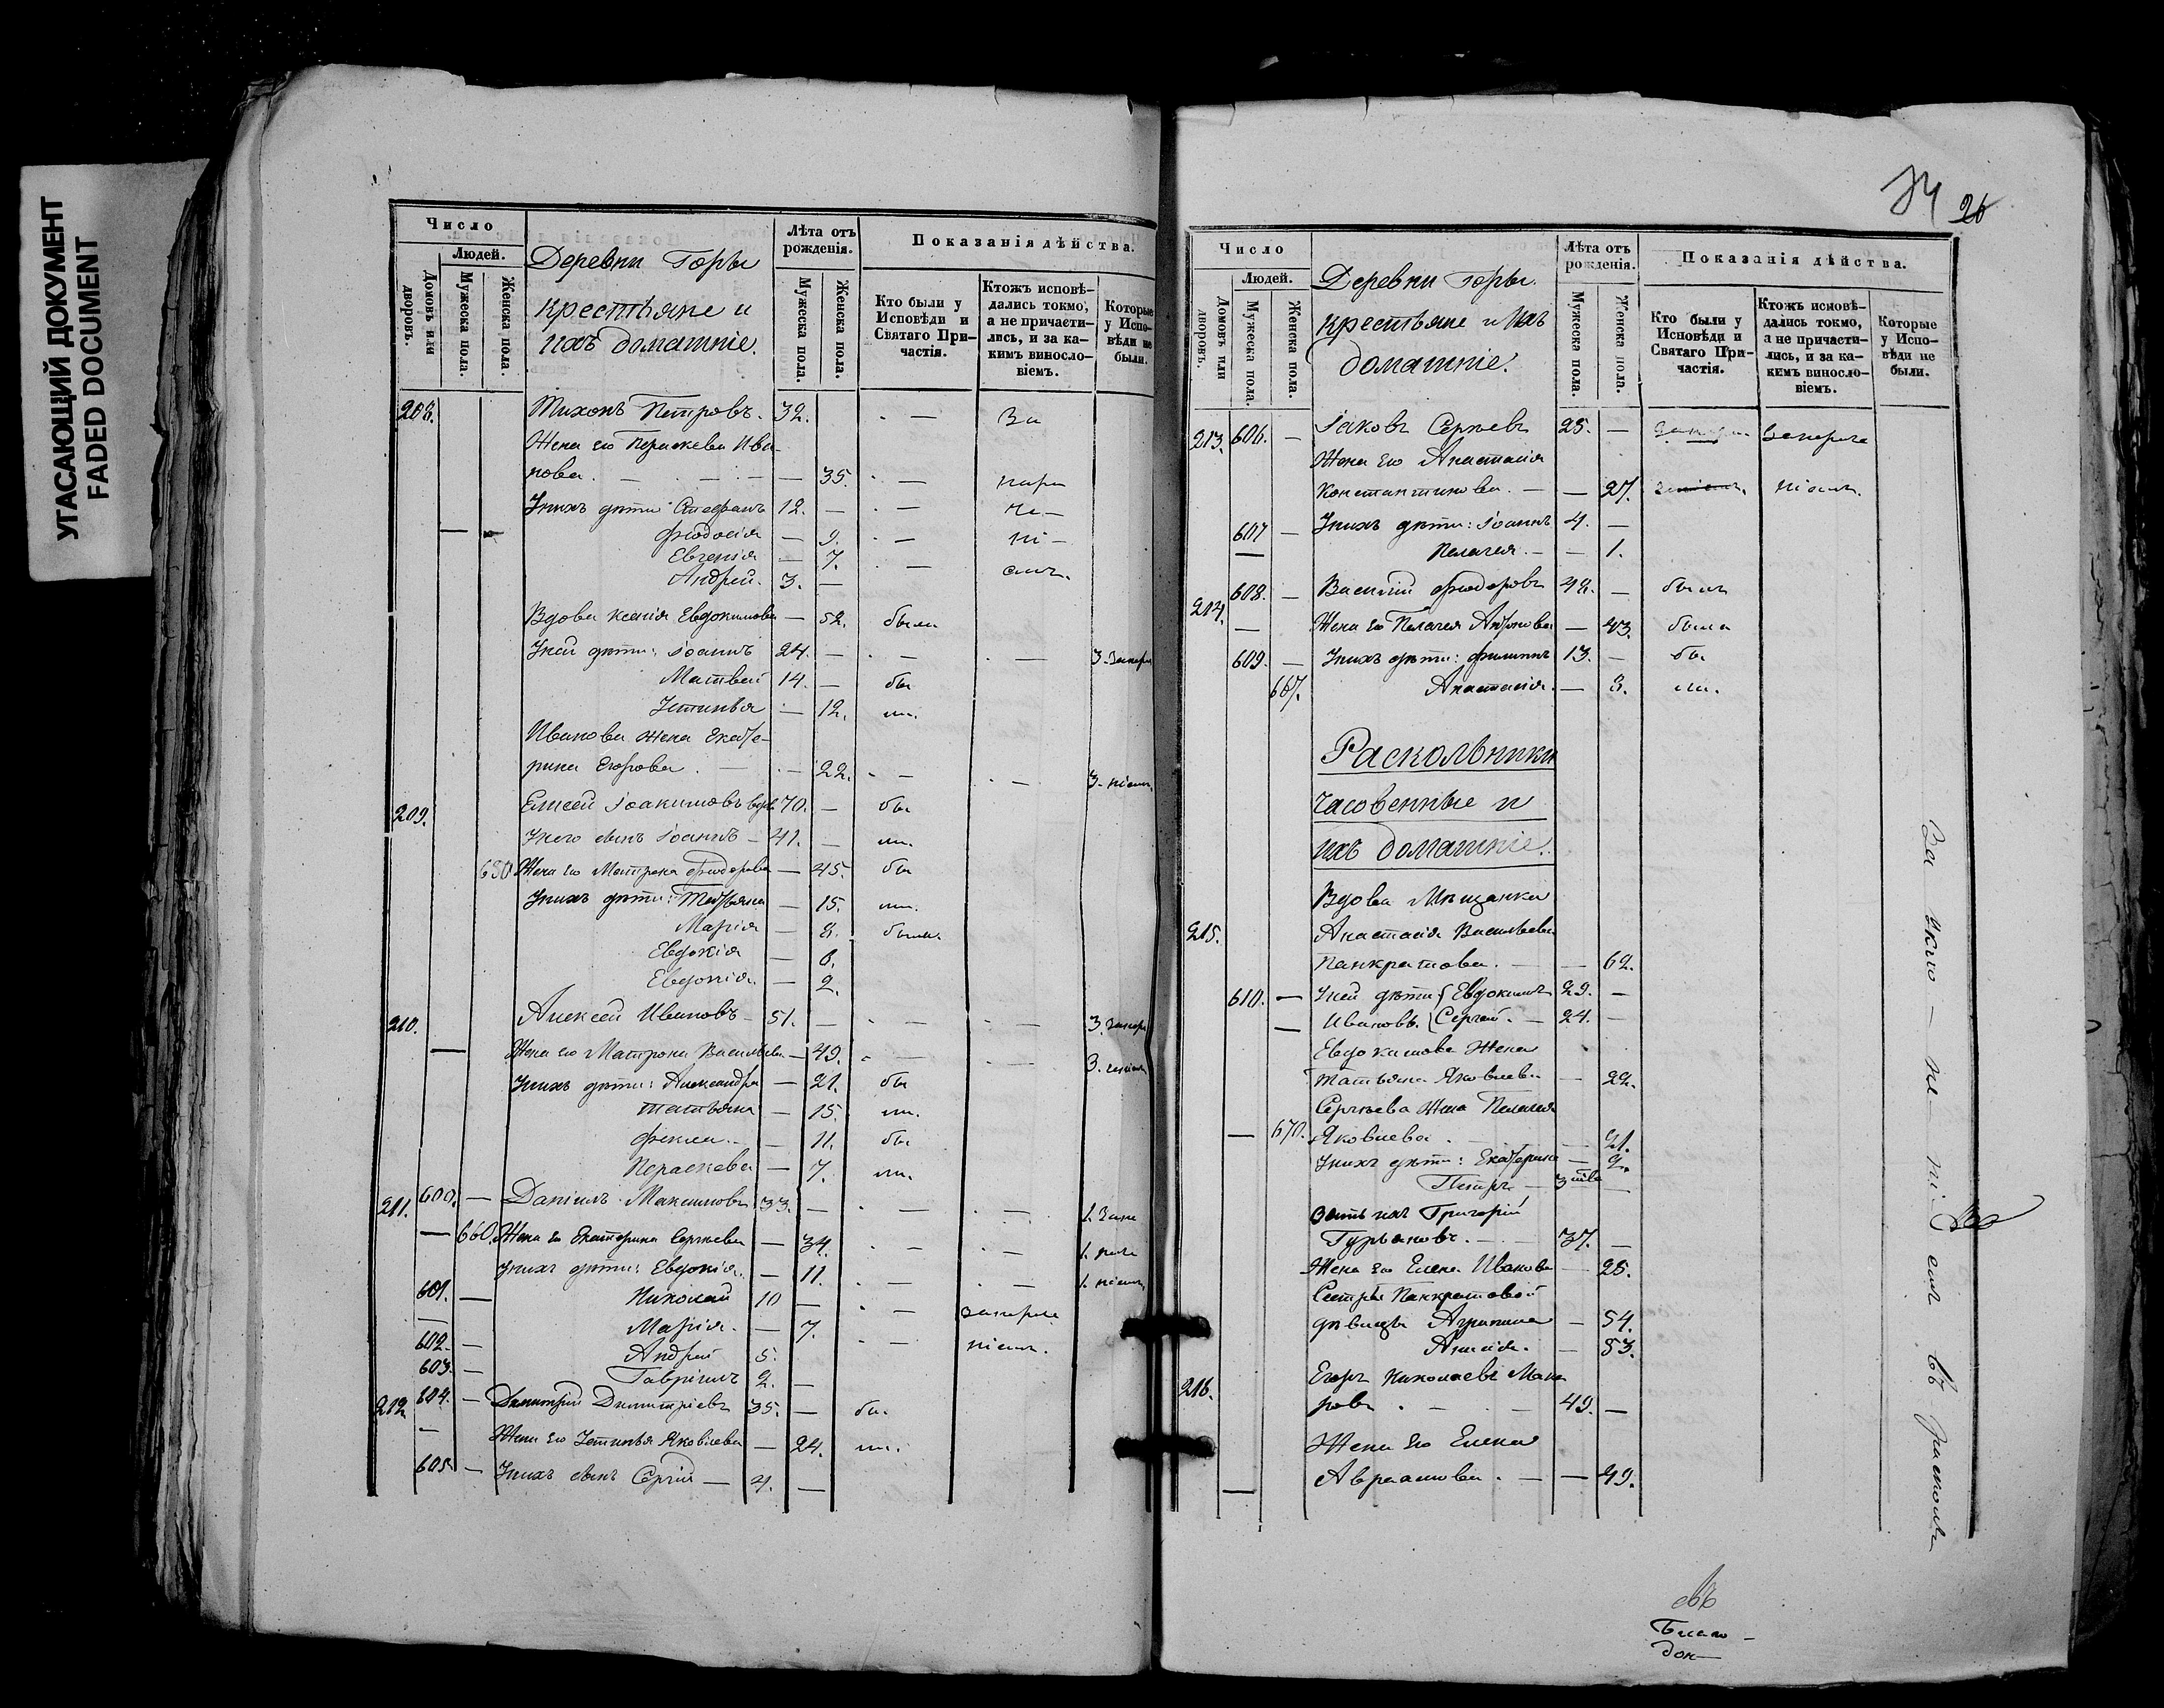 УГАСАЮЩИЙ ДОКУМЕНТ
FADED DOCUMENT
Число
Людей.
Домовъ или дворовъ.
Мужеска пола.
Женска пола.
Деревни Горы
крестьяне и
ихъ домашніе.
Лѣта отъ рожденія.
Мужеска пола.
Женска пола.
Показанія дѣйства.
Кто были у Исповѣди и Святаго Причастія.
Ктожъ исповѣдались токмо, а не причастились, и за какимъ винословіемъ.
Которые у Исповѣди не были.
208. Тихонъ Петровъ. 32. — За
Жена его Параскева Ива-
нова. — 35. —
У нихъ дѣти: Стефанъ 12. — —
Феодосія — 9. — ні —
Евгенія — 7. —
Андрей. 3. —
Вдова Ксенія Евдокимова — 52. была
У ней дѣти: Іоаннъ 24. — — — 3.
Матвей 14. — бы
Устинья — 12. ли.
Иванова жена Екате-
рина Егорова. — 22. — — 3.
209. Елисей Іоакимовъ вдов 70. — бы
У него сынъ Іоаннъ — 41. — ли.
650 Жена его Матрона Феодорова — 45. бы
У нихъ дѣти: Татьяна — 15. ли.
Марія — 8. были
Евдокія — 6.
Евдокія. — 2.
210. Алексей Ивановъ — 51. — — — 3.
Жена его Матрона Васильева — 49. — — 3.
У нихъ дѣти: Александра — 21. бы
Татьяна — 15. ли.
Фекла. — 11. бы
Параскева — 7. ли.
211. 600. — Даніилъ Максимовъ 33. — — — 1.
— 660. Жена его Екатерина Сергѣева — 34. — — 1.
У нихъ дѣти: Евдокія. — 11. — — 1.
601. — Николай 10 — —
— Марія. — 7. —
602. — Андрей 5.
603. — Гавріилъ 2. —
212. 604. — Димитрій Димитріевъ 35. — бы.
— Жена его Устинья Яковлева — 24. ли.
605 — У нихъ сынъ Сергій — 4. —
26
Число
Людей.
Домовъ или дворовъ.
Мужеска пола.
Женска пола.
Деревни Горы.
крестьяне и ихъ
домашніе.
Лѣта отъ рожденія.
Мужеска пола.
Женска пола.
Показанія дѣйства.
Кто были у Исповѣди и Святаго Причастія.
Ктожъ исповѣдались токмо, а не причастились, и за какимъ винословіемъ.
Которые у Исповѣди не были.
213. 606. — Іаковъ Сергѣевъ 25. —
Жена его Анастасія
Константинова. — — 27.
607 — У нихъ дѣти: Іоаннъ 4. —
— Пелагея. — — 1.
214. 608. — Василій Феодоровъ 48. — былъ
— Жена его Пелагея — 43. была
609. — У нихъ дѣти: Филиппъ 13. — бы
667. Анастасія. — 8. ли.
Раскольники
часовенные и
ихъ домашніе.
Вдова Мѣщанка
215. Анастасія Васильева
Панкратова. — — 62.
610. — У ней дѣти { Евдокимъ 29. —
— Ивановъ. { Сергей. — 24. —
Евдокимова жена
Татьяна Яковлева — 22.
Сергѣева жена Пелагея
— 670. Яковлева. — 21.
У нихъ дѣти: Екатерина — 2.
Петръ — 3 —
Зять ихъ Григорій
Гурьяновъ. — 37. —
Жена его Елена Иванова — 25.
Сестры Панкратовой
дѣвицы Агрипина — 54.
— 53.
216. Егоръ Николаевъ Мака
ровъ. — 49. —
Жена его Елена
— Авраамова. — — 49.
въ расколѣ